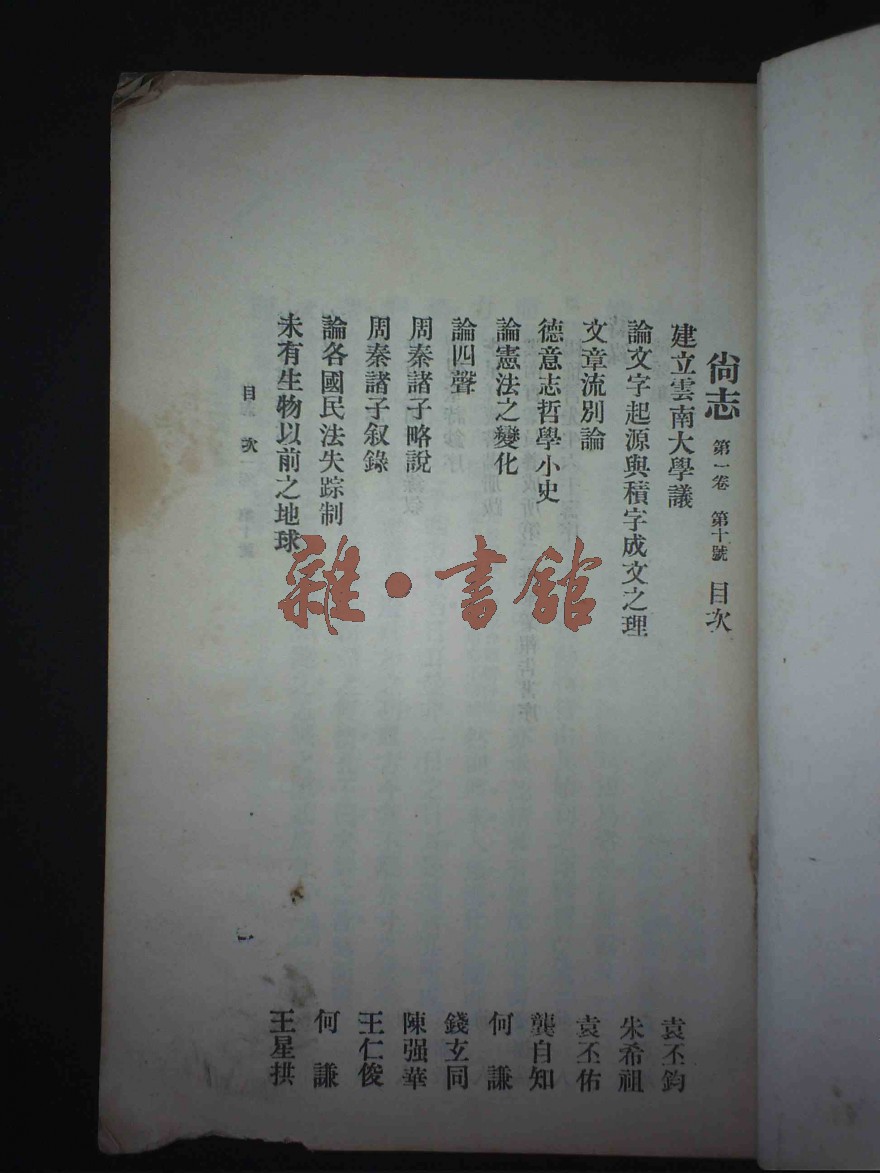 尙志 第一卷 第十號 目次
建立雲南大學議 袁丕鈞
論文字起源與積字成文之理 朱希祖
文章流別論 袁丕佑
德意志哲學小史 龔自知
論憲法之變化 何謙
論四聲 錢玄同
周秦諸子略說 陳强華
周秦諸子叙錄 王仁俊
論各國民法失踪制 何謙
未有生物以前之地球 王星拱
目次
一
雜·書館